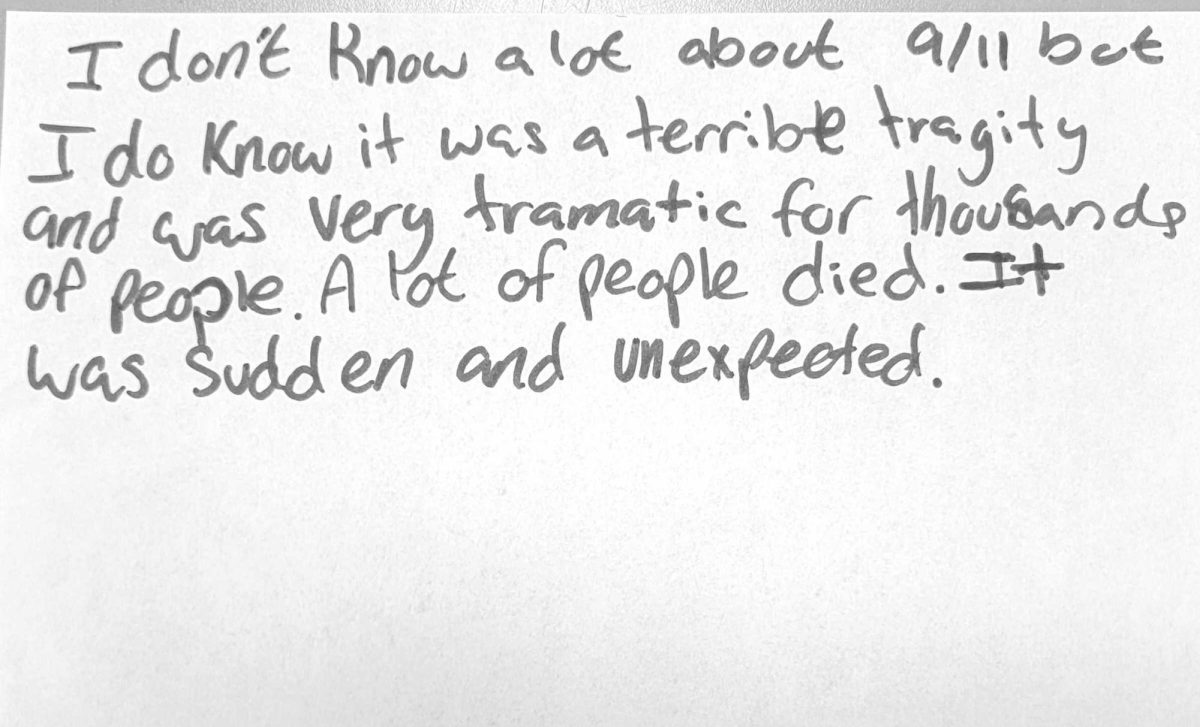 I don't know a lot about 9/11 but
I do know it was a terrible tragity
and was very tramatic for thousands
of people. A lot of people died. It
was sudden and unexpected.